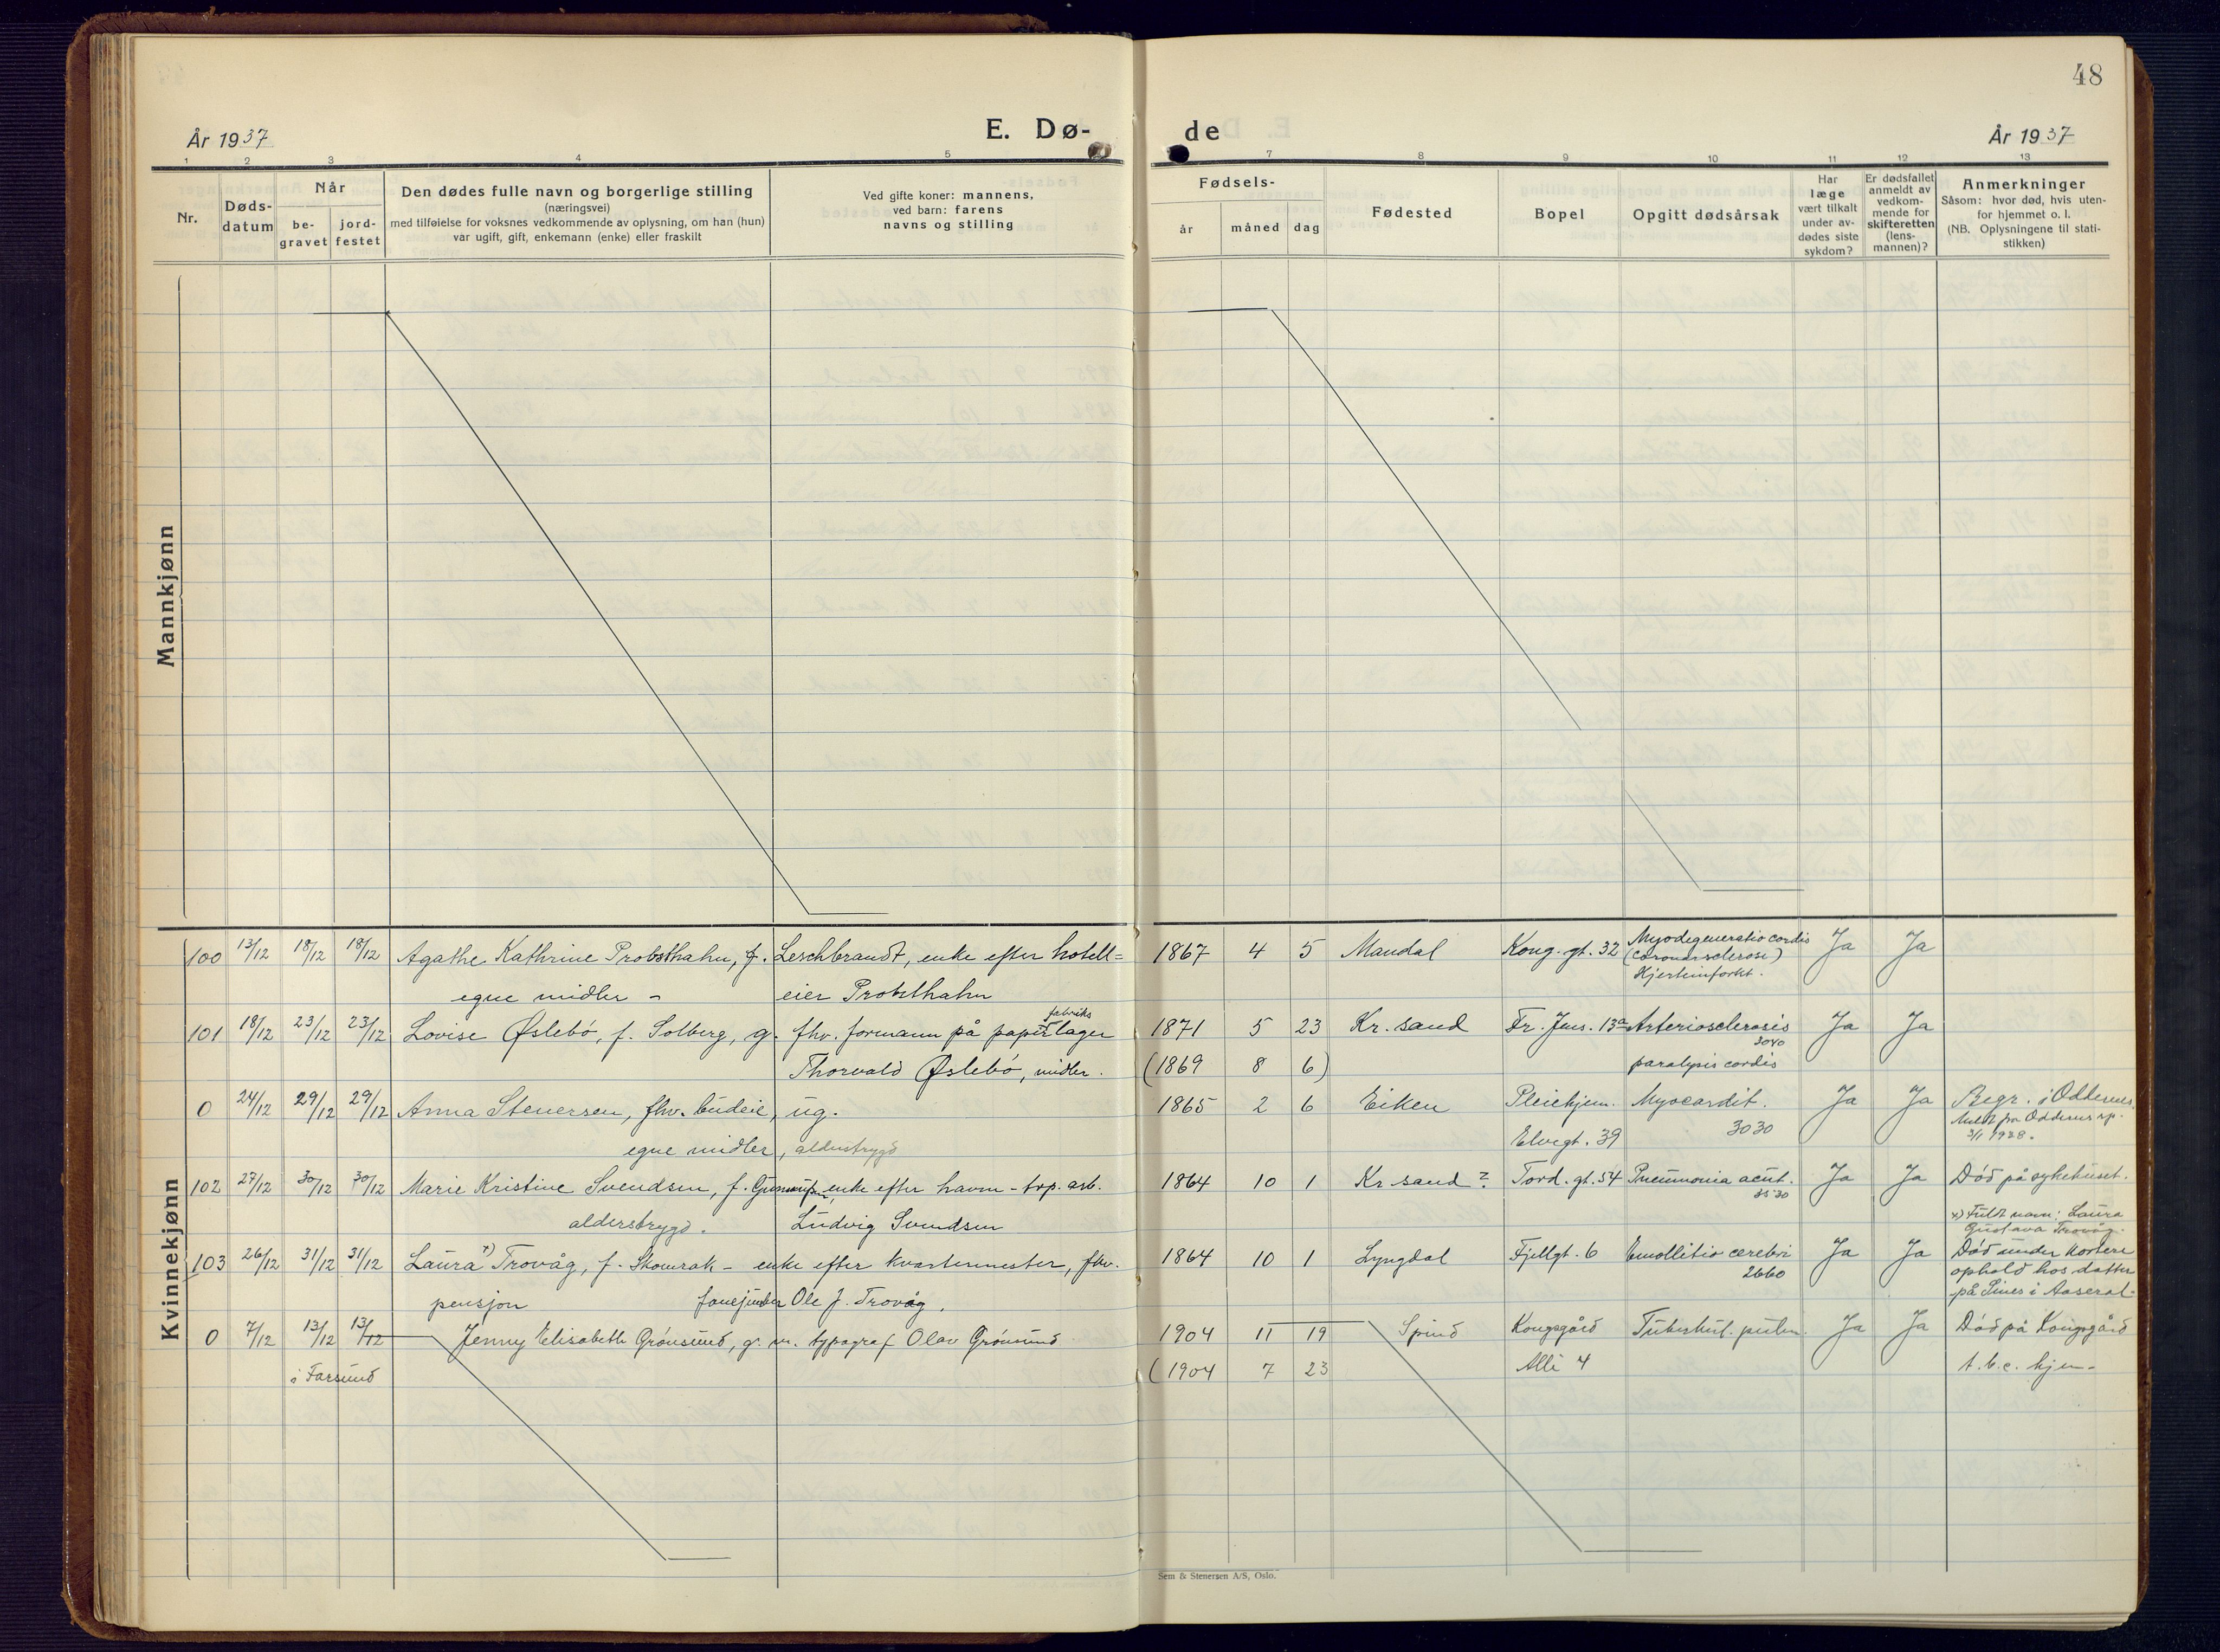 48
År 1937
E. Dø-
de
År 1937
1 2 3 4 5 7 8 9 10 11 12 13
Nr.
Døds-
datum
Når
be-
gravet
jord-
festet
Den dødes fulle navn og borgerlige stilling
(næringsvei)
med tilføielse for voksnes vedkommende av oplysning, om han (hun)
var ugift, gift, enkemann (enke) eller fraskilt
Ved gifte koner: mannens,
ved barn: farens
navns og stilling
Fødsels-
år
måned
dag
Fødested
Bopel
Opgitt dødsårsak
Har
læge
vært tilkalt
under av-
dødes siste
sykdom?
Er dødsfallet
anmeldt av
vedkom-
mende for
skifteretten
(lens-
mannen)?
Anmerkninger
Såsom: hvor død, hvis uten-
for hjemmet o. l.
(NB. Oplysningene til stati-
stikken)
Mannkjønn
Kvinnekjønn
100 13/12 18/12 18/12 Agathe Kathrine Probsthahn, f. Leschbrandt, enke efter hotell= 1867 4 5 Mandal Kong. gt. 32 Myodegeneratio cordis Ja Ja
(coronarsclerose)
Hjerteinfarkt.
egne midler - eier Probsthahn
101 18/12 23/12 23/12 Lovise Øslebö, f. Solberg, g. fhv. formann på papirfabriks lager 1871 5 23 Kr. sand Fr. Jens. 13a Arteriosclerosis Ja Ja
3040
Thorvald Øslebö, midler. (1869 8 6) paralysis cordis
0 24/12 29/12 29/12 Anna Stenersen, fhv. budeie, ug. 1865 2 6 Eiken Pleiehjem. Myocardit. Ja Ja Begr. i Oddernes.
Meldt fra Oddernes sp.
3/1 1938.
egne midler, alderstrygd Elvegt. 39 3030
102 27/12 30/12 30/12 Marie Kristine Svendsen, f. enke efter havn-trp. arb. 1864 10 1 Kr. sand? Tord. gt. 54 Pneumonia acut. Ja Ja Död på sykehuset.
3530
alderstrygd. Ludvig Svendsen
x) Fullt navn: Laura
Gustava Trovåg.
103 26/12 31/12 31/12 Laura x) Trovåg, f. Skomrak - enke efter kvartermester, fhv. 1864 10 1 Lyngdal Fjellgt. 6 Emollitio cerebri Ja Ja Död under kortere
2660
ophold hos datter
på Lines i Aaseral.
pensjon fanejunker Ole J. Trovåg.
0 7/12 13/12 13/12 Jenny Elisabeth Grönsund, g. m. typograf Olav Grönsund 1904 11 19 Spind Kongsgård Tuberkul. pulm. Ja Ja Död på Kongsgård
i Farsund (1904 7 23 Allé 4 t.b.c. hjem-
Sem & Stenersen A/S, Oslo.